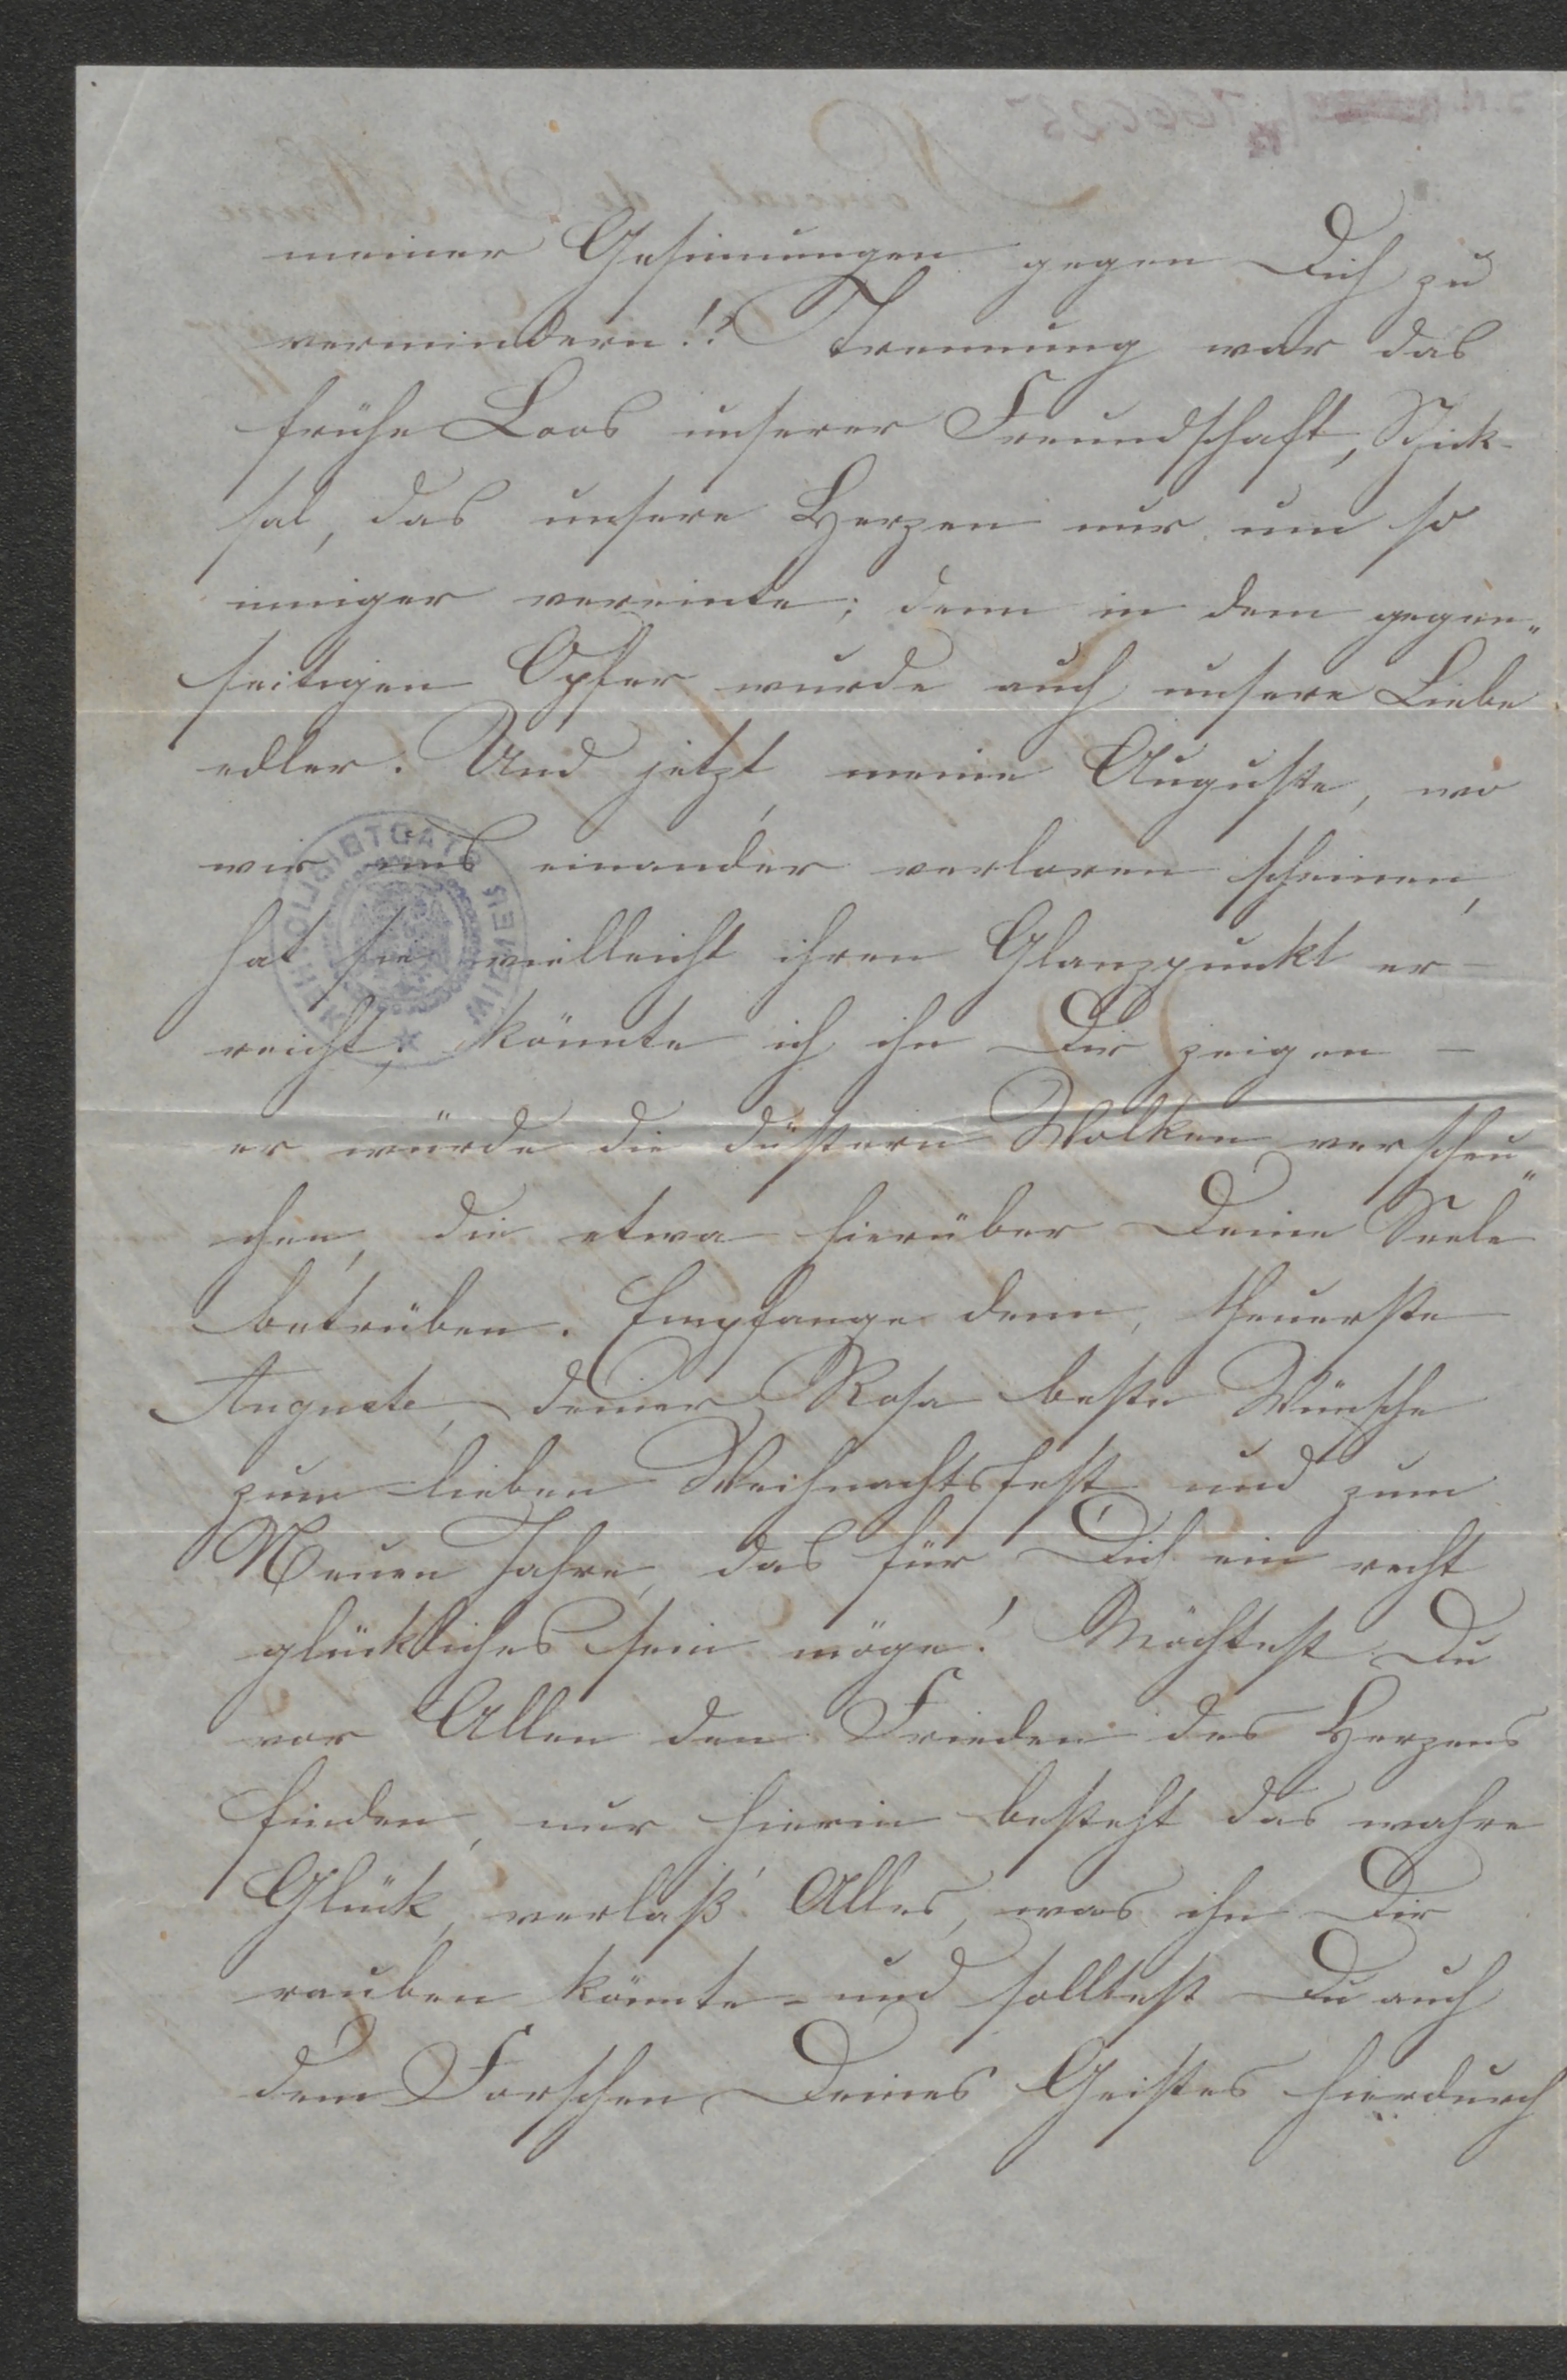 meiner Gesinnungen gegen Dich zu
vermindern!? Trennung war das
frühe Loos unserer Freundschaft, Schick-
sal, das unsere Herzen nur um so
inniger vereinte; denn in dem gegen„
seitigen Opfer wurde auch unsere Liebe
edler. Und jetzt, meine Auguste, wo
wir uns einander verloren scheinen,
hat sie vielleicht ihren Glanzpunkt er-
reicht; könnte ich ihn Dir zeigen –
er würde die düstern Wolken verscheu„
chen, die etwa hierüber Deine Seele
betrüben. Empfange denn, theuerste
Auguste, deiner Rosa beste Wünsche
zum lieben Weihnachtsfest und zum
Neuen Jahre, das für Dich ein recht
glückliches sein möge! Möchtest Du
vor Allen den Frieden des Herzens
finden, nur hierin besteht das wahre
Glück, verlaß Alles, was ihn Dir
rauben könnte – und solltest Du auch
dem Forschen Deines Geistes hierdurch
WIENER STADTBIBLIOTHEK